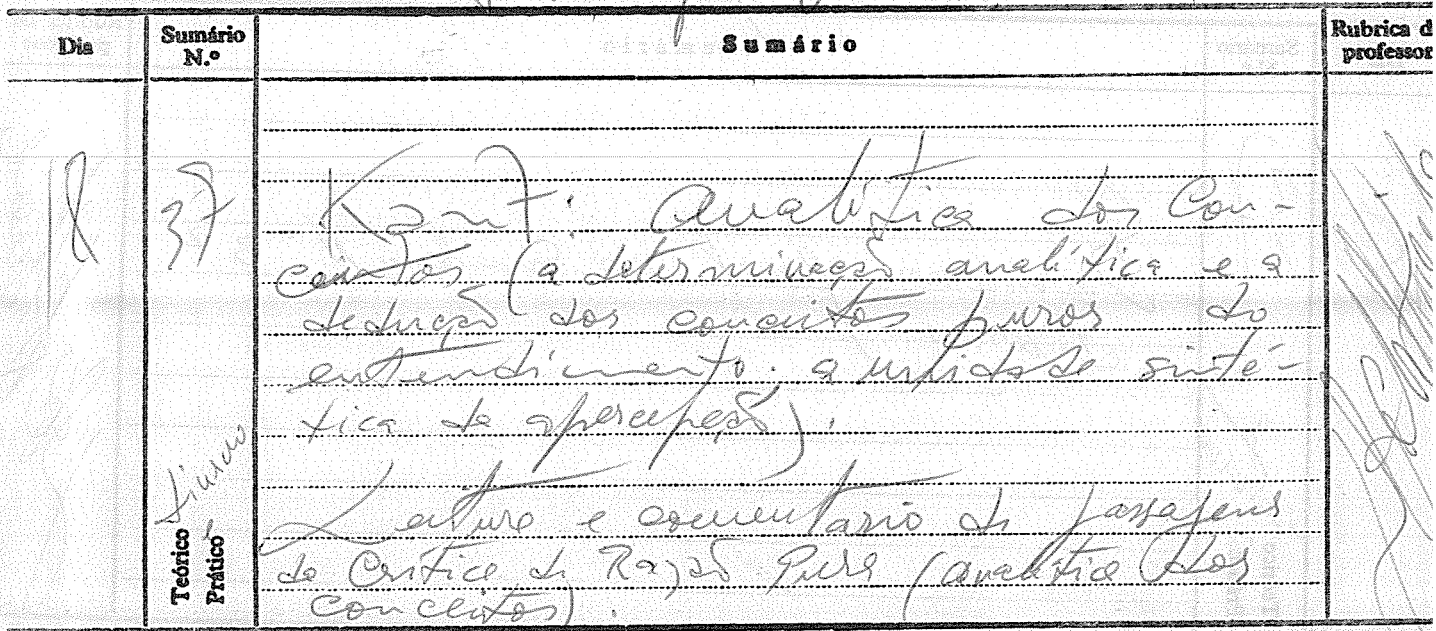 Dia
Sumário
N.º
Sumário
Rubrica d
professor
18
37
Kant: Analítica dos Con-
ceitos (a determinação analítica e a
dedução dos conceitos puros do
entendimento. a unidade sinté-
tica da apercepção).
Leitura e comentário de passagens
da Crítica da Razão Pura (analítica dos
conceitos).
Teórico
Prático